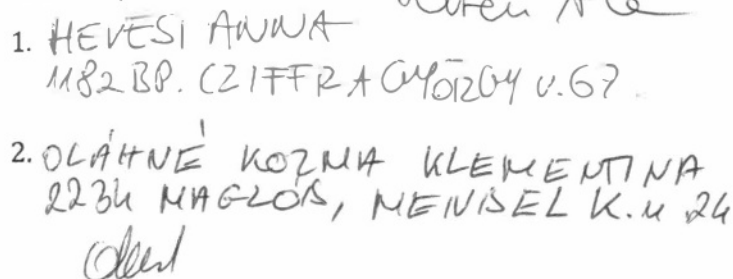 1. HEVESI ANNA
1182 BP. CZIFFRA GYÖRGY U. 67.
2. OLÁHNÉ KOZMA KLEMENTINA
2234 MAGLÓD, MENDEL K. U 24